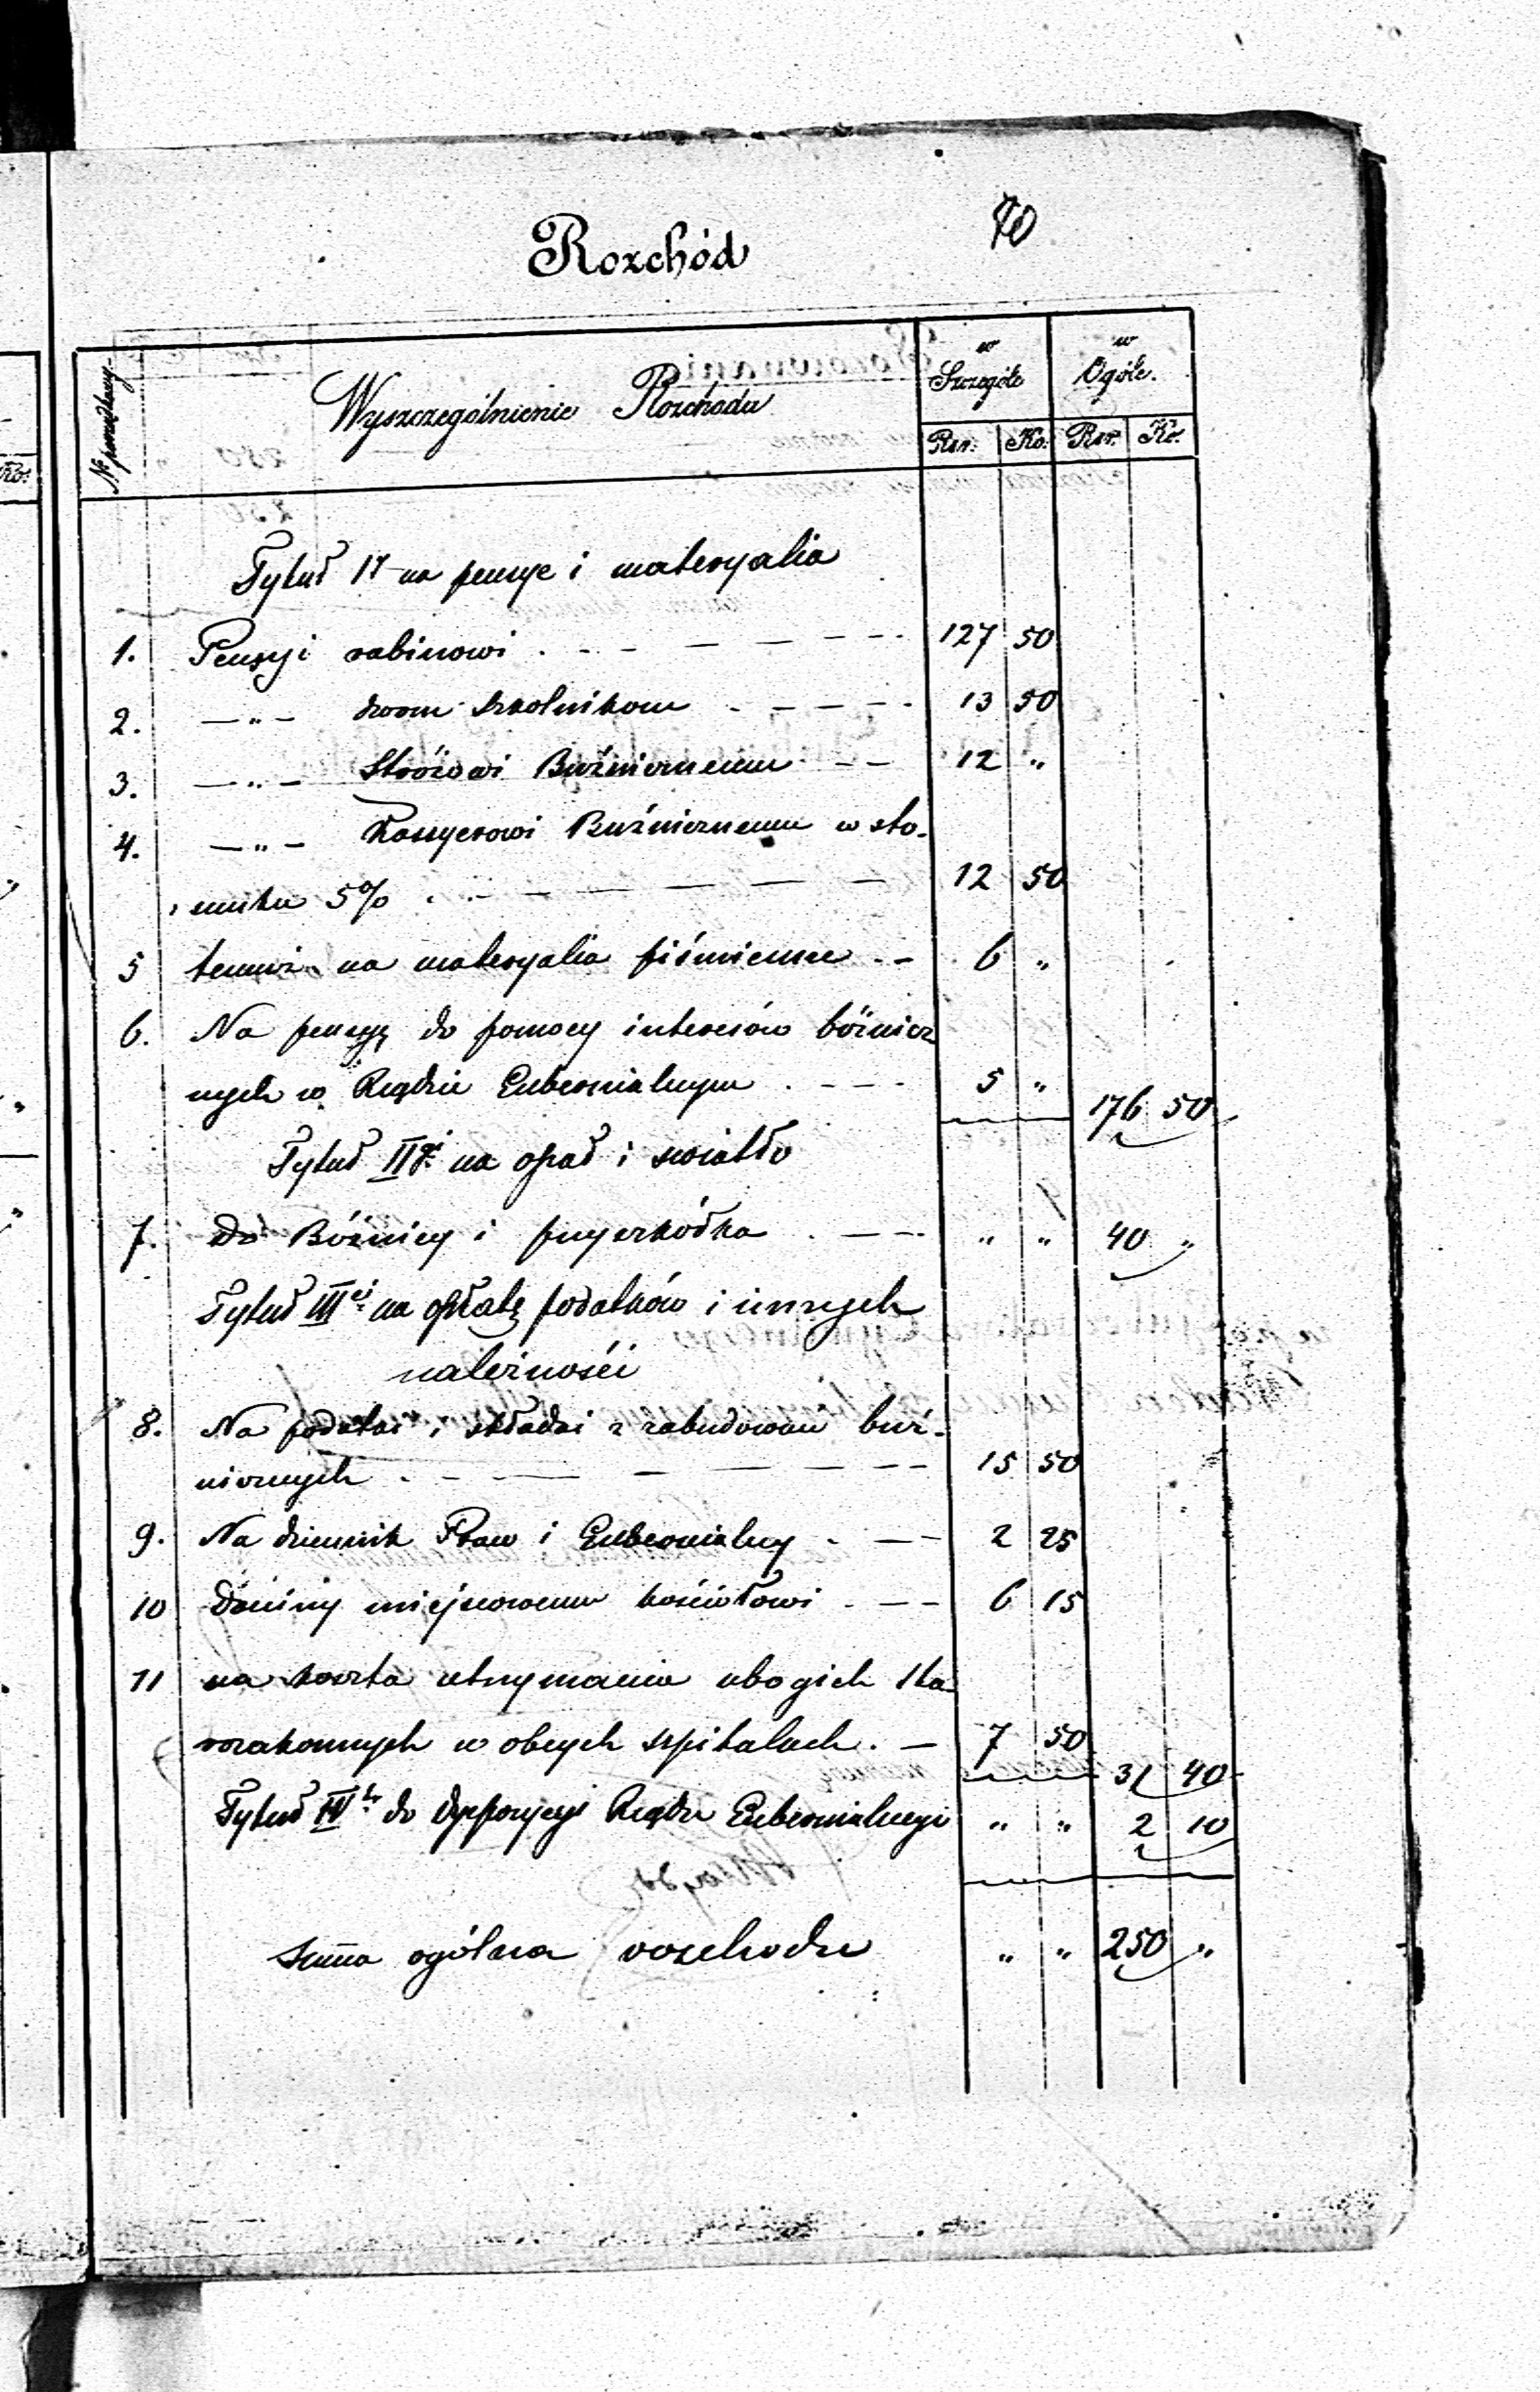 70
Rozchód
Nr porządkowy
Wyszczególnienie Rozchodu
w Szczególe
w Ogóle.
Rsr. Ko. Rsr. Ko.
Tytuł I na pensye i materyalia
1. Pensyi rabinowi . - - - - - - - 127 50
2. — " — dwom szkolnikom - - - - - 13 50
3. — " — Stróżowi Bużnicznemu - - 12 "
4. — " — Kassyerowi Bużnicznemu w sto-
sunku 5% . - - - - - - 12 50
5 temuż na materyalia piśmienne - - 6 "
6. Na pensyę do pomocy interesów bóżnicz
nych w Rządzie Gubernialnym . - - - 5 " 176 50
Tytuł II na opał i swiatło
7. do Bóżnicy i przyszkółka . — - " " 40 "
Tytuł III na opłatę podatków i innych
należności
8. Na podatki i składki z zabudowań buż-
nicznych . - - - - - - - 15 50
9. Na dziennik Praw i Gubernialny . - - 2 25
10 daniny miejscowemu kościołowi . - - 6 15
11 na koszta utrzymania ubogich sta
rozakonnych w obcych szpitalach . — 7 50 31 40
Tytuł IV do dyspozycyi Rządu Gubernialnego " " 2 10
Summa ogólna rozchodu " " 250 "
Ko.